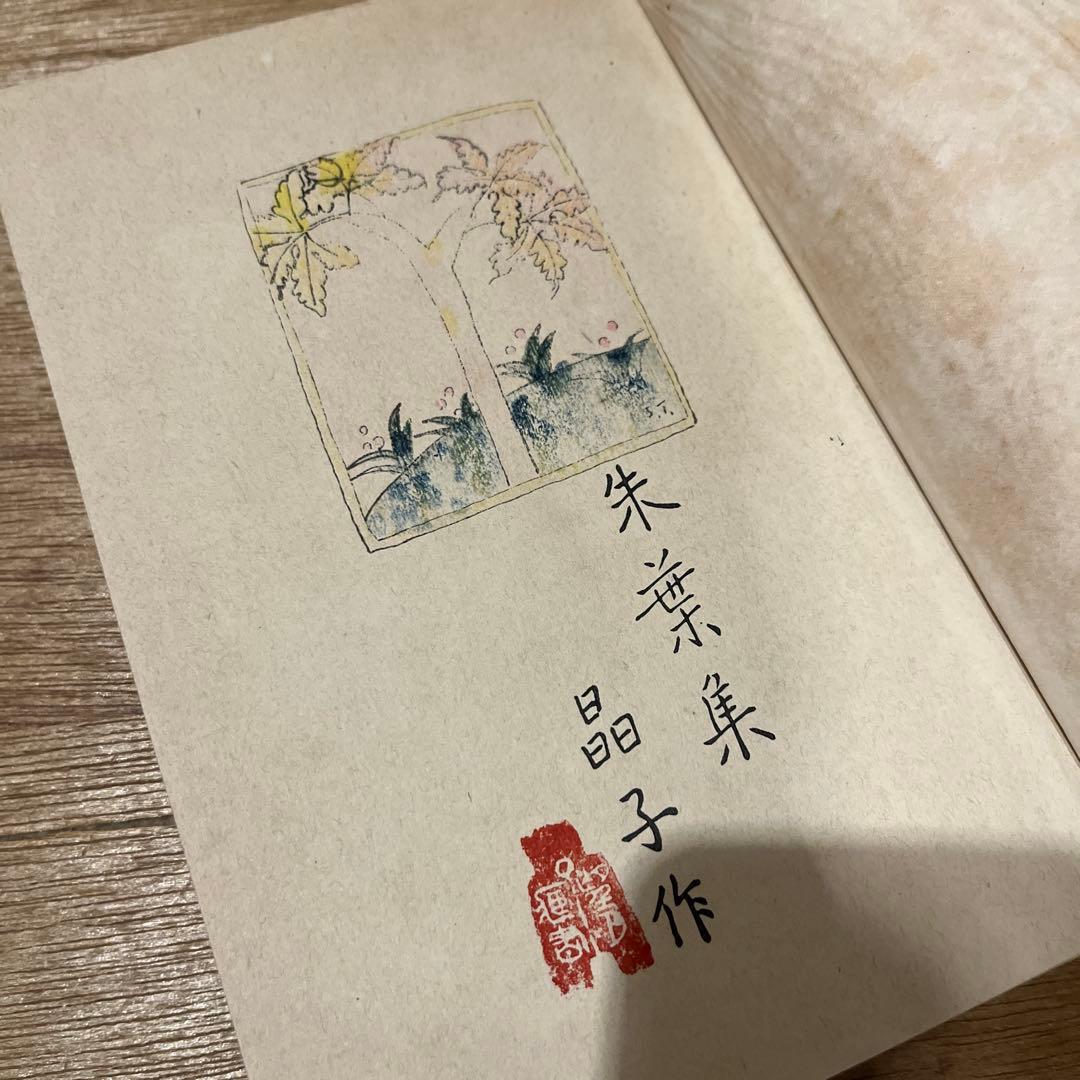 朱葉集
晶子作
S.T.